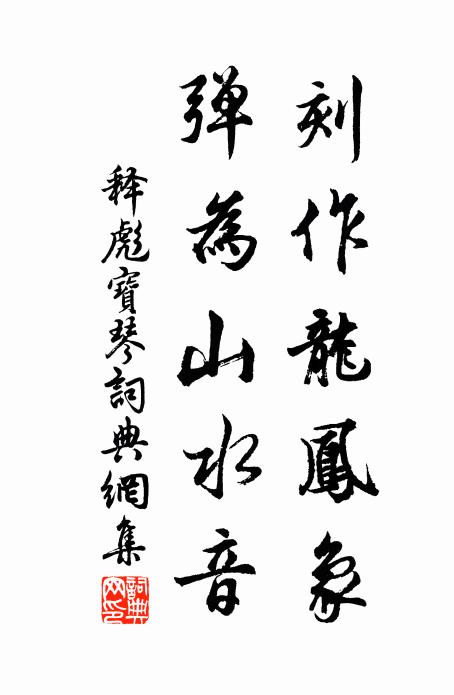 刻作龍鳳象
弹為山水音
释彪寶琴詞典網集
詞典網印